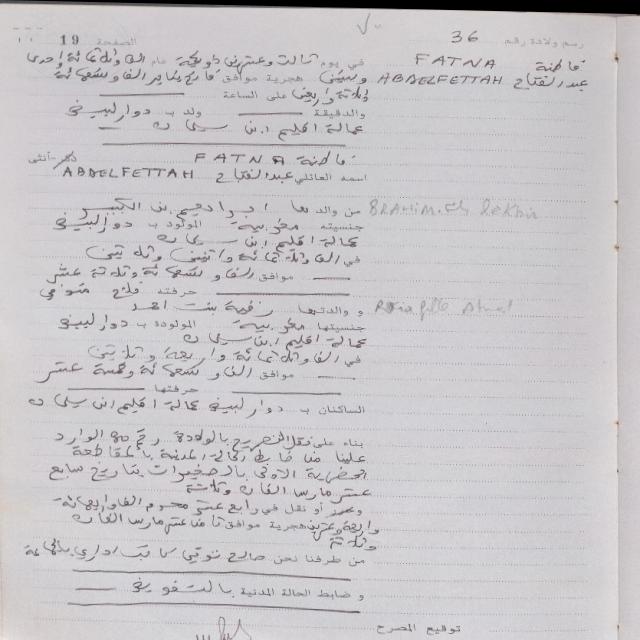 الصفحة 19
رسم ولادة رقم 36
فاطنة FATNA
عبد الفتاح ABDELFETTAH
في يوم ثالث وعشرين ذو الحجة عام الف وثلاثمائة احدى
وستين هجرية موافق فاتح يناير الف وتسعمائة
وثلاثة واربعين على الساعة
والدقيقة ولد ب دوار لبيض
عمالة اقليم ابن سليمان
فاطنة FATNA
ذكر - أنثى
اسمه العائلي عبد الفتاح ABDELFETTAH
من والدها ابراهيم ابن الكبير BRAHIM
جنسيته مغربية المولود ب دوار لبيض
عمالة اقليم ابن سليمان
في الف وثلاثمائة واثنين وثلاثين
موافق الف وتسعمائة وثلاثة عشر
حرفته فلاح متوفي
و والدتها رقية بنت احمد
جنسيتها مغربية المولودة ب دوار لبيض
عمالة اقليم ابن سليمان
في الف وثلاثمائة واربعة وثلاثين
موافق الف وتسعمائة وخمسة عشر
حرفتها
الساكنان ب دوار لبيض عمالة اقليم ابن سليمان
بناء على نقل التصريح بالولادة رقم الوارد
علينا من ضابط الحالة المدنية بالمقاطعة
الحضرية الاولى بالصخيرات بتاريخ سابع
عشر مارس الفان وثلاثة
أو نقل في رابع عشر محرم الف واربعمائة
واربعة وعشرين هجرية موافق ثامن عشر مارس الفان
وثلاثة
من طرفنا نحن صالح
و ضابط الحالة المدنية بالتفويض
توقيع المصرح